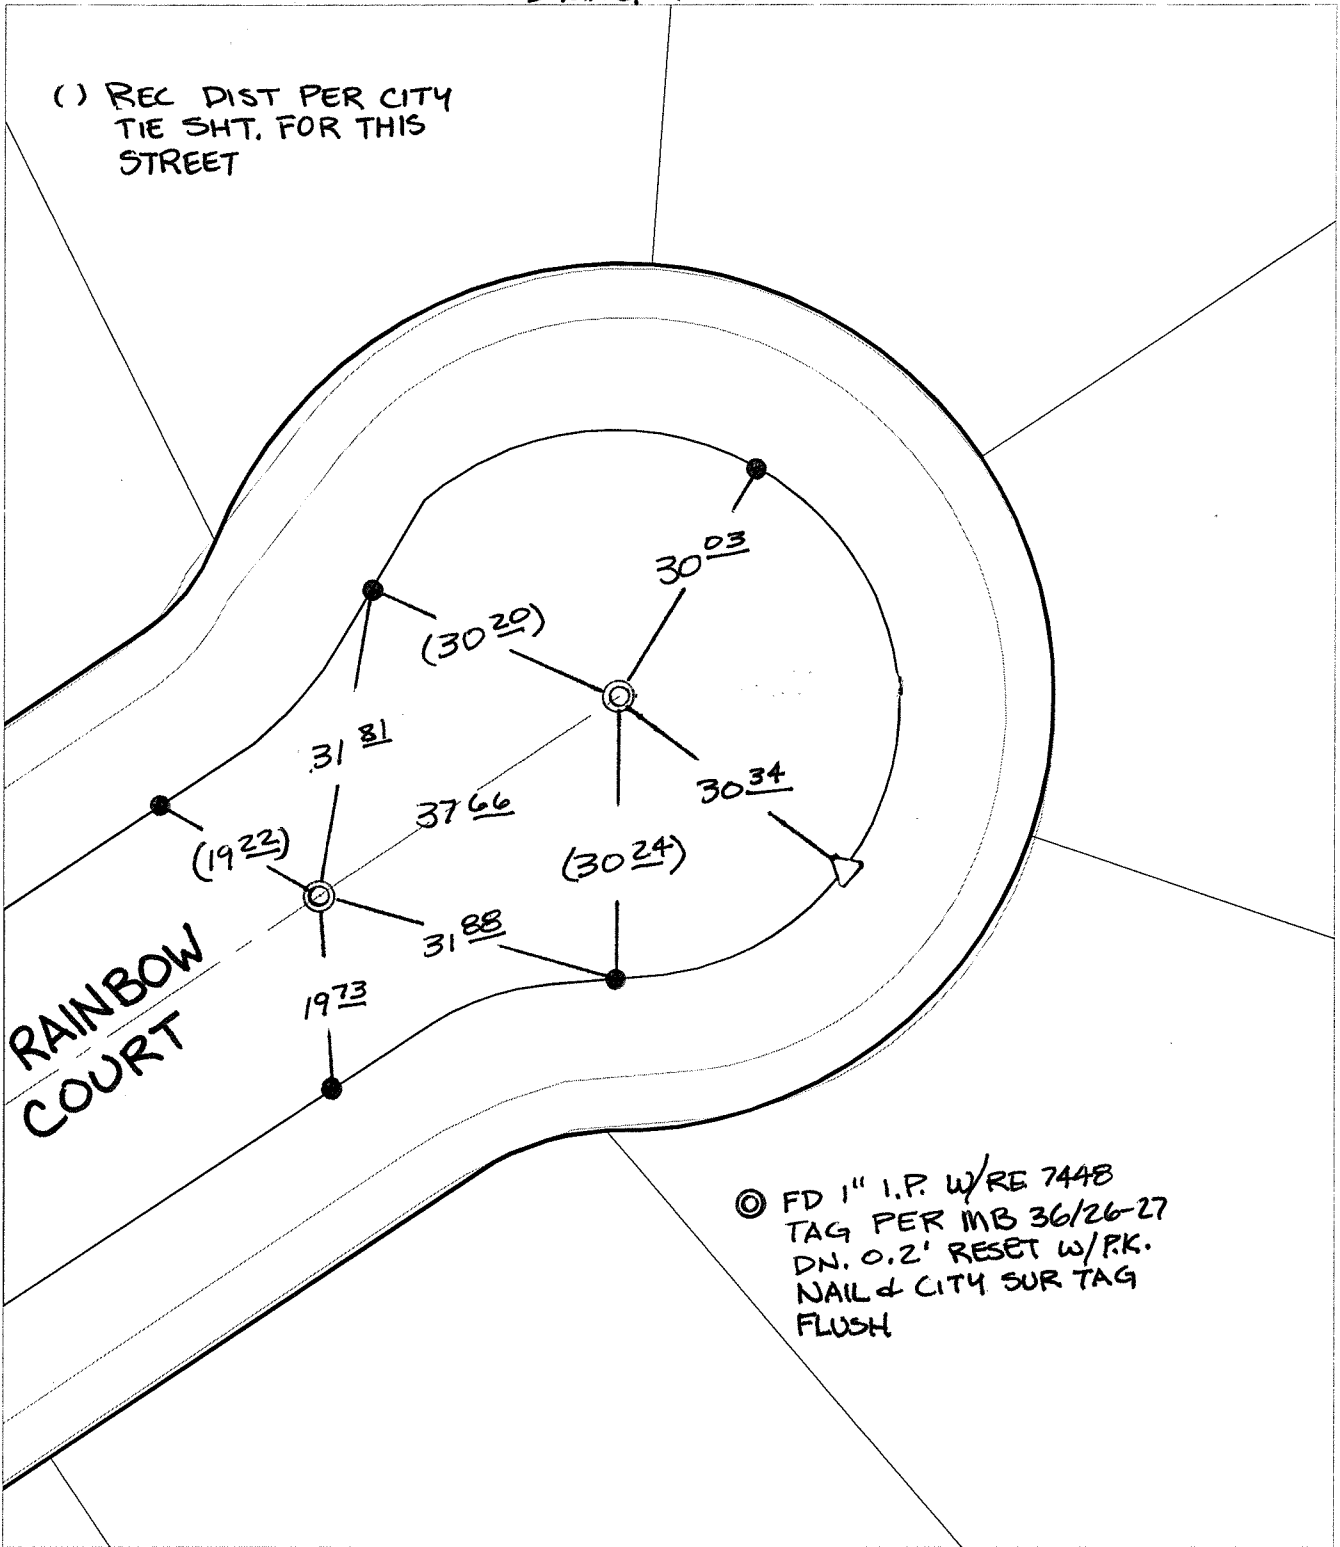 ( ) REC DIST PER CITY
TIE SHT. FOR THIS
STREET
30 03
(30 20)
31 81
37 66
30 34
(19 22)
(30 24)
31 88
19 73
RAINBOW
COURT
FD 1" I.P. W/RE 7448
TAG PER MB 36/26-27
DN. 0.2' RESET W/P.K.
NAIL & CITY SUR TAG
FLUSH